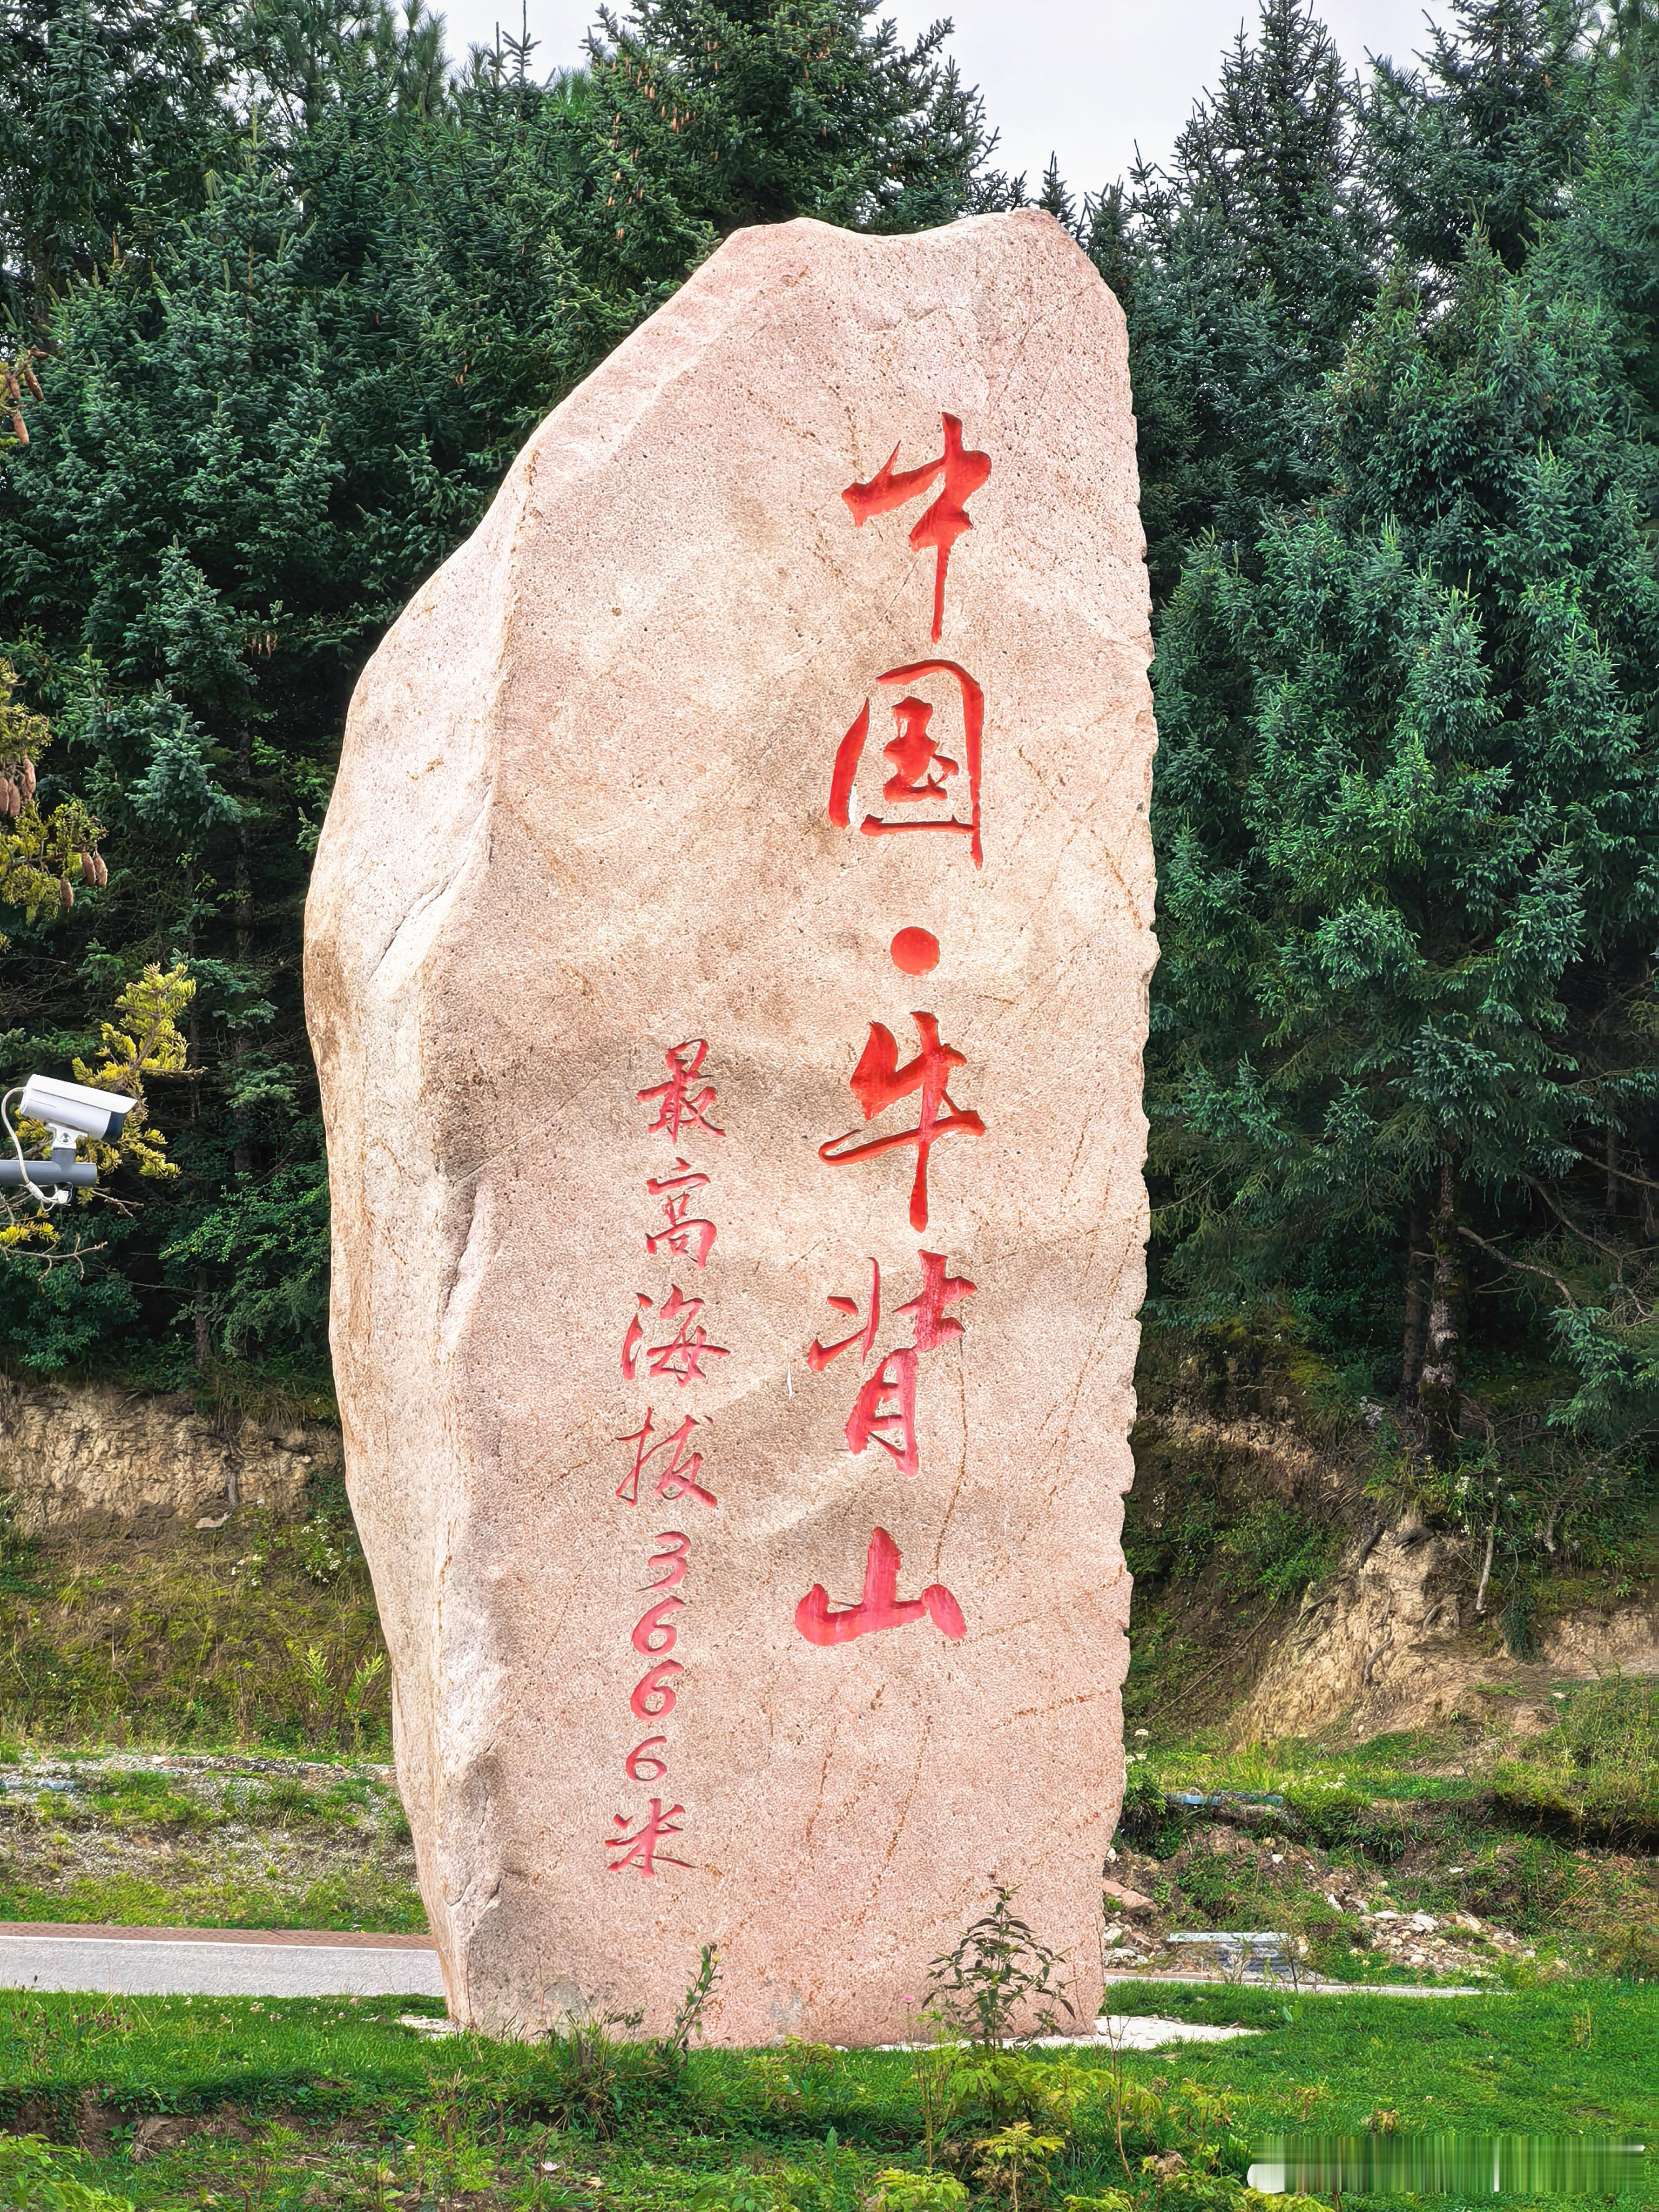 中国·牛背山
最高海拔3666米